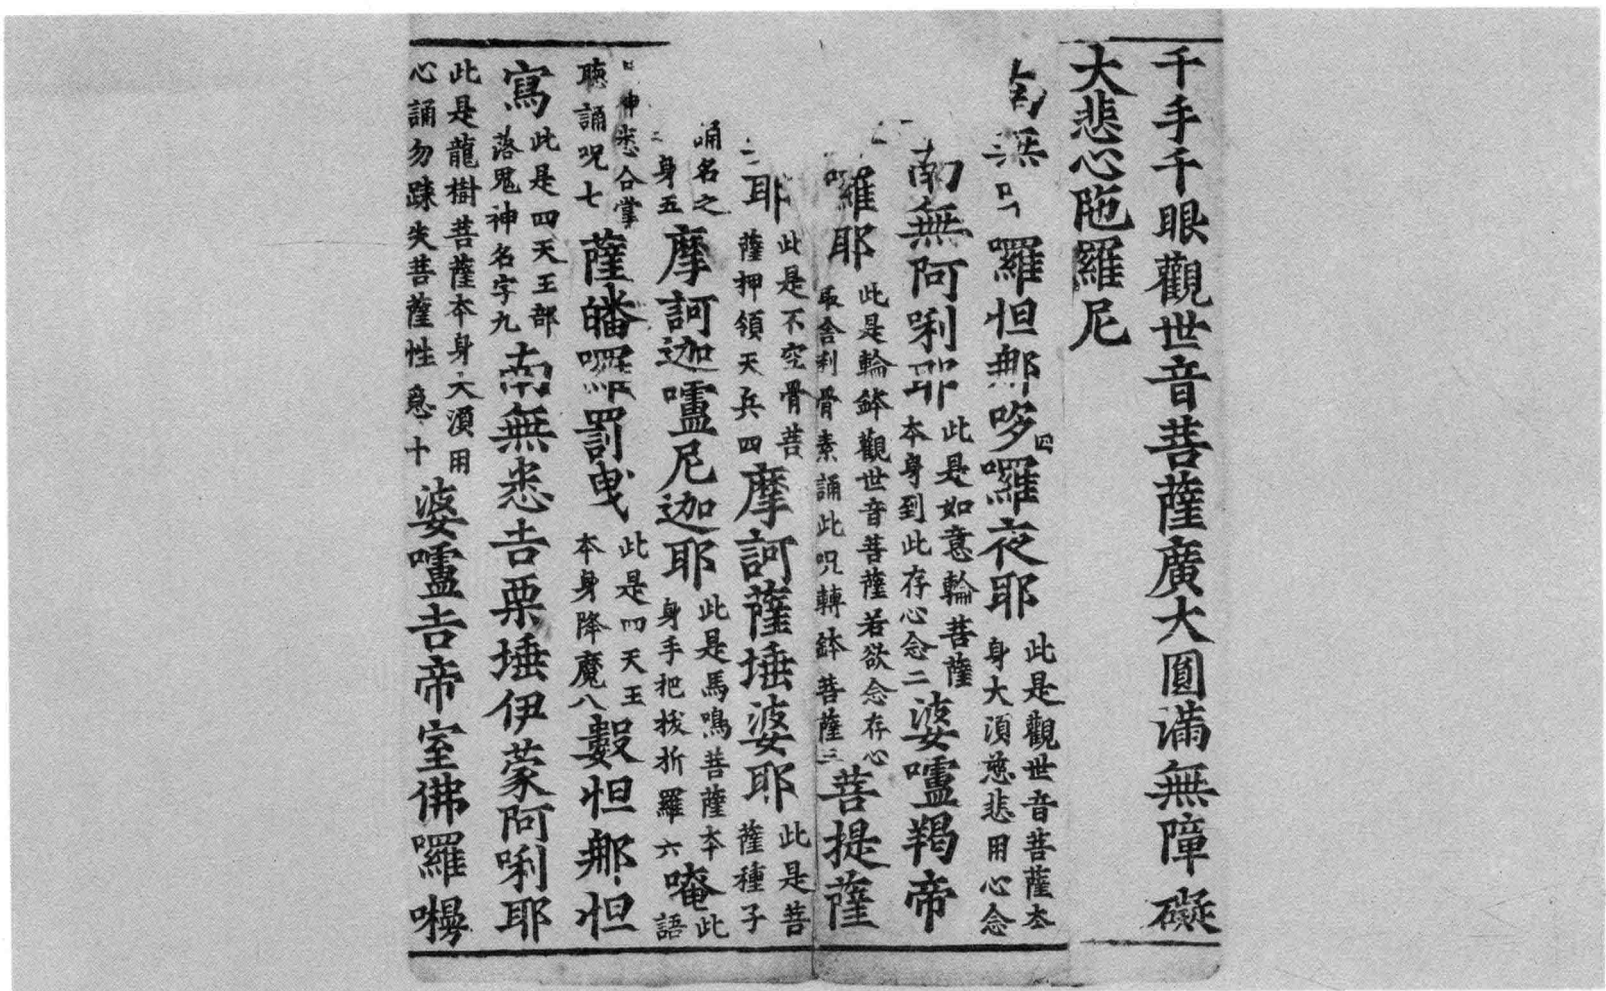 千手千眼觀世音菩薩廣大圓滿無障礙
大悲心陁羅尼
南無囉怛那哆囉夜耶 此是觀世音菩薩本身大湏慈悲用心念
南無阿唎耶 此是如意輪菩薩本身到此存心念二 婆嚧羯帝
囉耶 此是輪鉢觀世音菩薩若欲念存心取舍利骨素誦此呪轉鉢菩薩三 菩提薩
耶 此是不空骨菩薩押領天兵四 摩訶薩埵婆耶 此是菩薩種子
誦名之身五 摩訶迦嚧尼迦耶 此是馬鳴菩薩本身手把拔折羅六 唵 此語
神悉合掌聽誦呪七 薩皤囉罰曳 此是四天王本身降魔八 數怛那怛
寫 此是四天王部落鬼神名字九 南無悉吉栗埵伊蒙阿唎耶
此是龍樹菩薩本身大湏用心誦勿踈失菩薩性急十 婆嚧吉帝室佛囉㘄